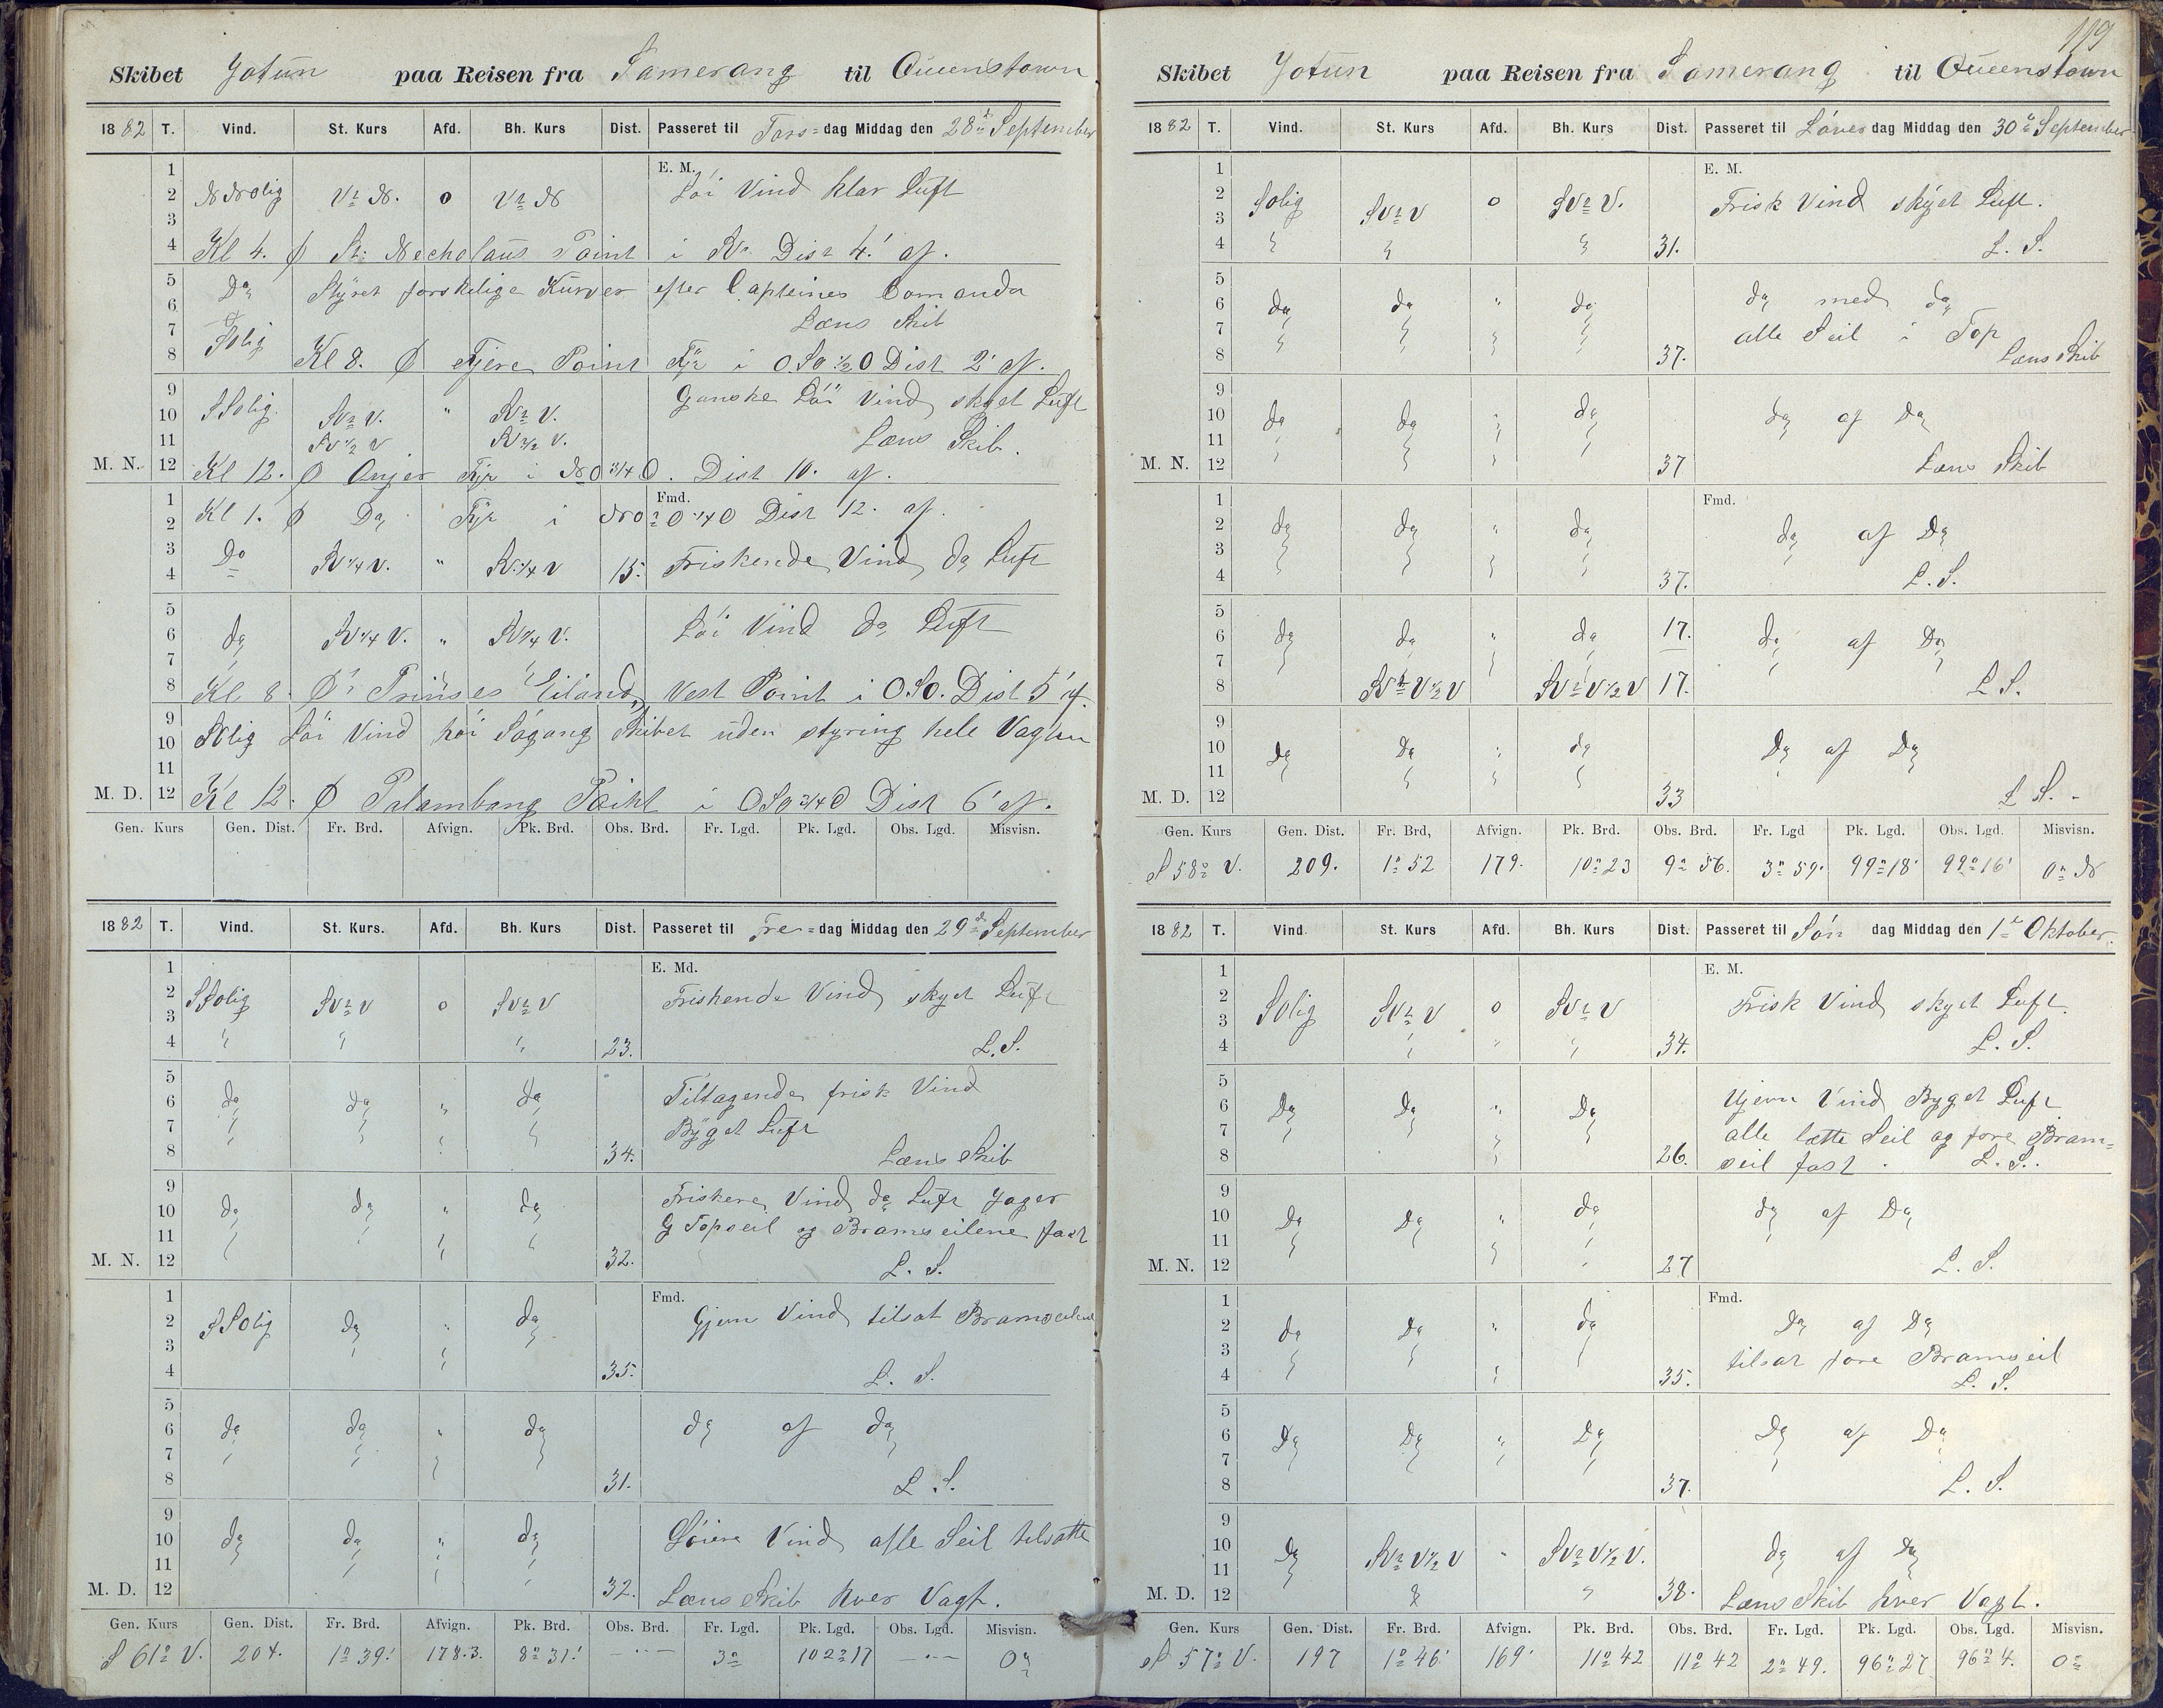 Skibet Jotun paa Reisen fra Samerang til Queenstown
1882 T. Vind. St. Kurs Afd. Bh. Kurs Dist. Passeret til Tors=dag Middag den 28de September
E. M.
1
2 NNolig V t N. 0 V t N Löi Vind klar Luft
3
4 Kl 4. Φ St: Necholaus Point i SV. Dist 4.' af.
5 Do Styret forskjelige Kurser efter Capteines Comando
6
7 Solig Læns Skib
8 Kl 8. Φ Fjere Point Fyr i O.SO ½ O Dist 2' af.
9 Ganske Löi Vind skyet Luft
10 SSolig. SV t V. " SV t V.
11 SV ½ V SV ½ V. Læns Skib.
M. N. 12 Kl 12. Φ Anjer Fyr i NO ¾ O. Dist 10. af.
Fmd.
1 Kl 1. Φ Do Fyr i NO t O ¼ O Dist 12. af.
2
3 Do SV ¼ V. " SV ¼ V 15. Friskende Vind do Luft
4
5
6 do SV ¼ V. " SV ¼ V. Löi Vind do Luft
7
8 Kl 8. Φ Prinses Eiland Vest Point i OSO. Dist 5' af.
9
10 SOlig Löi Vind höi Sögang Skibet uden styring hele Vagten
11
M. D. 12 Kl 12. Φ Palambang Point i OSO ¾ O Dist 6' af.
Gen. Kurs Gen. Dist. Fr. Brd. Afvign. Pk. Brd. Obs. Brd. Fr. Lgd. Pk. Lgd. Obs. Lgd. Misvisn.
1882 T. Vind. St. Kurs. Afd. Bh. Kurs Dist. Passeret til Fre=dag Middag den 29de September
E. Md.
1
2 SSolig SV t V 0 SV t V Friskende Vind skyet Luft
3
4 " " " 23. L.S.
5
6 do do " do Tiltagende frisk Vind
7 Byget Luft
8 34. Læns Skib
9 Friskere Vind do Luft Jager
10 do do " do G Topseil og Bramseilene fast
11
M. N. 12 32. L. S.
Fmd.
1
2 SSolig do " do Gjevn Vind tilsat Bramseilene
3
4 35. L. S.
5
6 do do " do do af do
7
8 31. L. S.
9
10 do do " do Löiere Vind alle Seil tilsatte
11
M. D. 12 32. Læns Skib hver Vagt.
Gen. Kurs Gen. Dist. Fr. Brd. Afvign. Pk. Brd. Obs. Brd. Fr. Lgd. Pk. Lgd. Obs. Lgd. Misvisn.
S 61° V. 204. 1° 39' 178.3. 8° 31' — 3° 102° 17 — 0°
119
Skibet Jotun paa Reisen fra Samerang til Queenstown
1882 T. Vind. St. Kurs Afd. Bh. Kurs Dist. Passeret til Löver dag Middag den 30te September
E. M.
1
2 Solig SV t V 0 SV t V. Frisk Vind skyet Luft.
3
4 " " " 31. L. S.
5
6 do do " do do med do
7 alle Seil i Top
8 37. Læns Skib
9
10 do do " do do af do
11
M. N. 12 37 Læns Skib
Fmd.
1
2 do do " do do af Do
3
4 37. L. S.
5
6 do do " do 17. do af Do
7
8 SV t V ½ V SV t V ½ V 17. L S.
9
10 do Do " do Do af Do
11
M. D. 12 33 L S. -
Gen. Kurs Gen. Dist. Fr. Brd, Afvign. Pk. Brd. Obs. Brd. Fr. Lgd Pk. Lgd. Obs. Lgd. Misvisn.
S 58° V. 209. 1° 52 179. 10° 23 9° 56. 3° 59. 99° 18' 99° 16' 0° N
1882 T. Vind. St. Kurs Afd. Bh. Kurs Dist. Passeret til Sön dag Middag den 1te Oktober.
E. M.
1
2 Solig SV t V 0 SV t V Frisk Vind skyet Luft.
3
4 34. L. S.
5
6 Do Do " Do Ujevn Vind Byget Luft
7 alle lette Seil og fore Bram=
8 26. seil fast. L. S.
9
10 Do Do " do do af Do
11
M. N. 12 27 L. S.
Fmd.
1
2 do Do " do Do af Do
3 tilsat fore Bramseil
4 35. L. S.
5
6 Do Do " Do Do af Do
7
8 37. L. S.
9
10 Do SV t V ½ V " SV t V ½ V. do af do
11
M. D. 12 38. Læns Skib hver Vagt.
Gen. Kurs Gen. Dist. Fr. Brd. Afvign. Pk. Brd. Obs. Brd. Fr. Lgd. Pk. Lgd. Obs. Lgd. Misvisn.
S 57° V. 197 1° 46' 169' 11° 42 11° 42 2° 49. 96° 27 96° 4. 0°